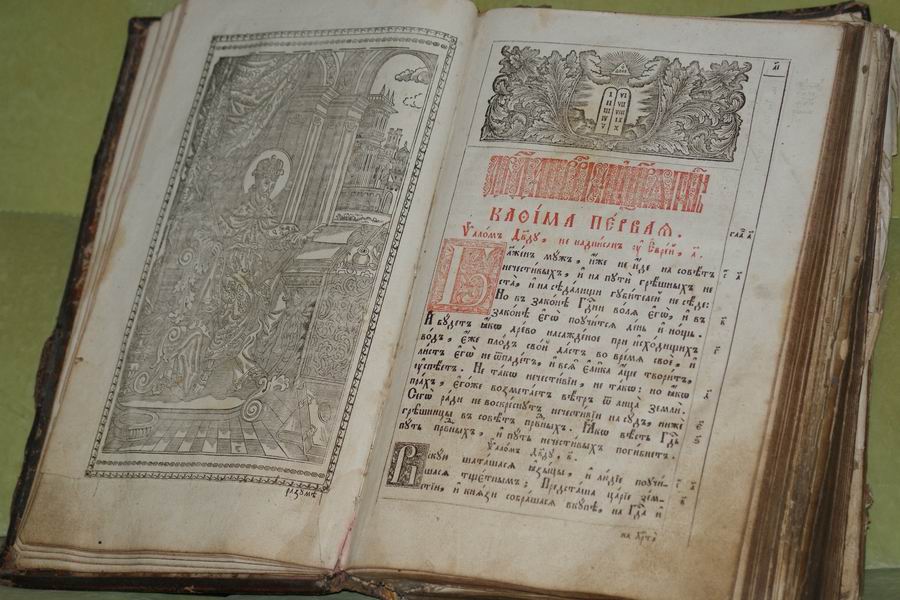 разумъ
I VI
II VII
III VIII
IV IX
V X
КАѲІ́СМА ПЕ́РВАѦ.
Ѱало́мъ Дв҃ду, не надпи́санъ ᲂу҆ Є҆врє́й, а҃.
Блаже́нъ мꙋ́жъ, и҆́же не и҆́де на совѣ́тъ
нечести́выхъ, и҆ на пꙋтѝ грѣ́шныхъ не
ста̀, и҆ на сѣда́лищи гꙋби́телей не сѣ́де:
Но въ зако́нѣ Гд҇ни во́лѧ є҆гѡ̀, и҆ въ
зако́нѣ є҆гѡ̀ поꙋчи́тсѧ де́нь и҆ но́щь.
И҆ бꙋ́детъ ꙗ҆́кѡ дре́во насажде́ное при и҆схо́дищихъ
во́дъ, є҆́же пло́дъ сво́й да́стъ во вре́мѧ своѐ, и҆
ли́стъ є҆гѡ̀ не ѿпаде́тъ, и҆ всѧ̑ є҆ли̑ка а҆́ще твори́тъ,
ᲂу҆спѣ́етъ. Не та́кѡ нечести́вїи, не та́кѡ: но ꙗ҆́кѡ
пра́хъ, є҆го́же возмета́етъ вѣ́тръ ѿ лица̀ землѝ.
Сегѡ̀ ра́ди не воскре́снꙋтъ нечести́вїи на сꙋ́дъ, нижѐ
грѣ́шницы въ совѣ́тъ прв҇ныхъ. Ꙗ҆́кѡ вѣ́сть Гд҇ь
пꙋ́ть прв҇ныхъ, и҆ пꙋ́ть нечести́выхъ поги́бнетъ.
Ѱало́мъ Дв҃дꙋ, в҃.
Вскꙋ́ю шата́шасѧ ꙗ҆зы́цы, и҆ лю́дїе поꙋчи́-
шасѧ тщє́тнымъ; Предста́ша ца́рїе зе́м-
стїи, и҆ кнѧ́зи собра́шасѧ вкꙋ́пѣ, на Гд҇а и҆
на Хр҇та̀